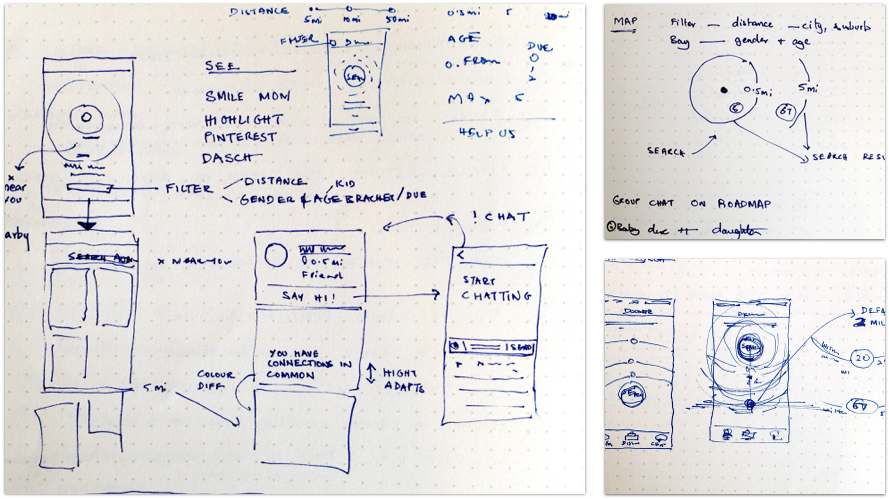 DISTANCE
5mi 10mi 50mi
FILTER
SEE
SMILE MOM
HIGHLIGHT
PINTEREST
DASCH
0.5mi 5
AGE
DUE
0. FROM 0
1
2
MAX 5
HELP US
x near
you
FILTER
DISTANCE
KID
GENDER & AGE BRACKET/DUE
arby
SEARCH
x NEAR YOU
0.5mi
Friend
SAY HI!
! CHAT
START
CHATTING
SEND
YOU HAVE
CONNECTIONS IN
COMMON
COLOUR
DIFF
HIGHT
ADAPTS
5mi
MAP
Filter — distance — city, suburb
Bay — gender + age
0.5mi
5mi
6
67
SEARCH
SEARCH RESU
GROUP CHAT ON ROADMAP
Baby due ++ daughter
DEFA
2 MIL
20
67